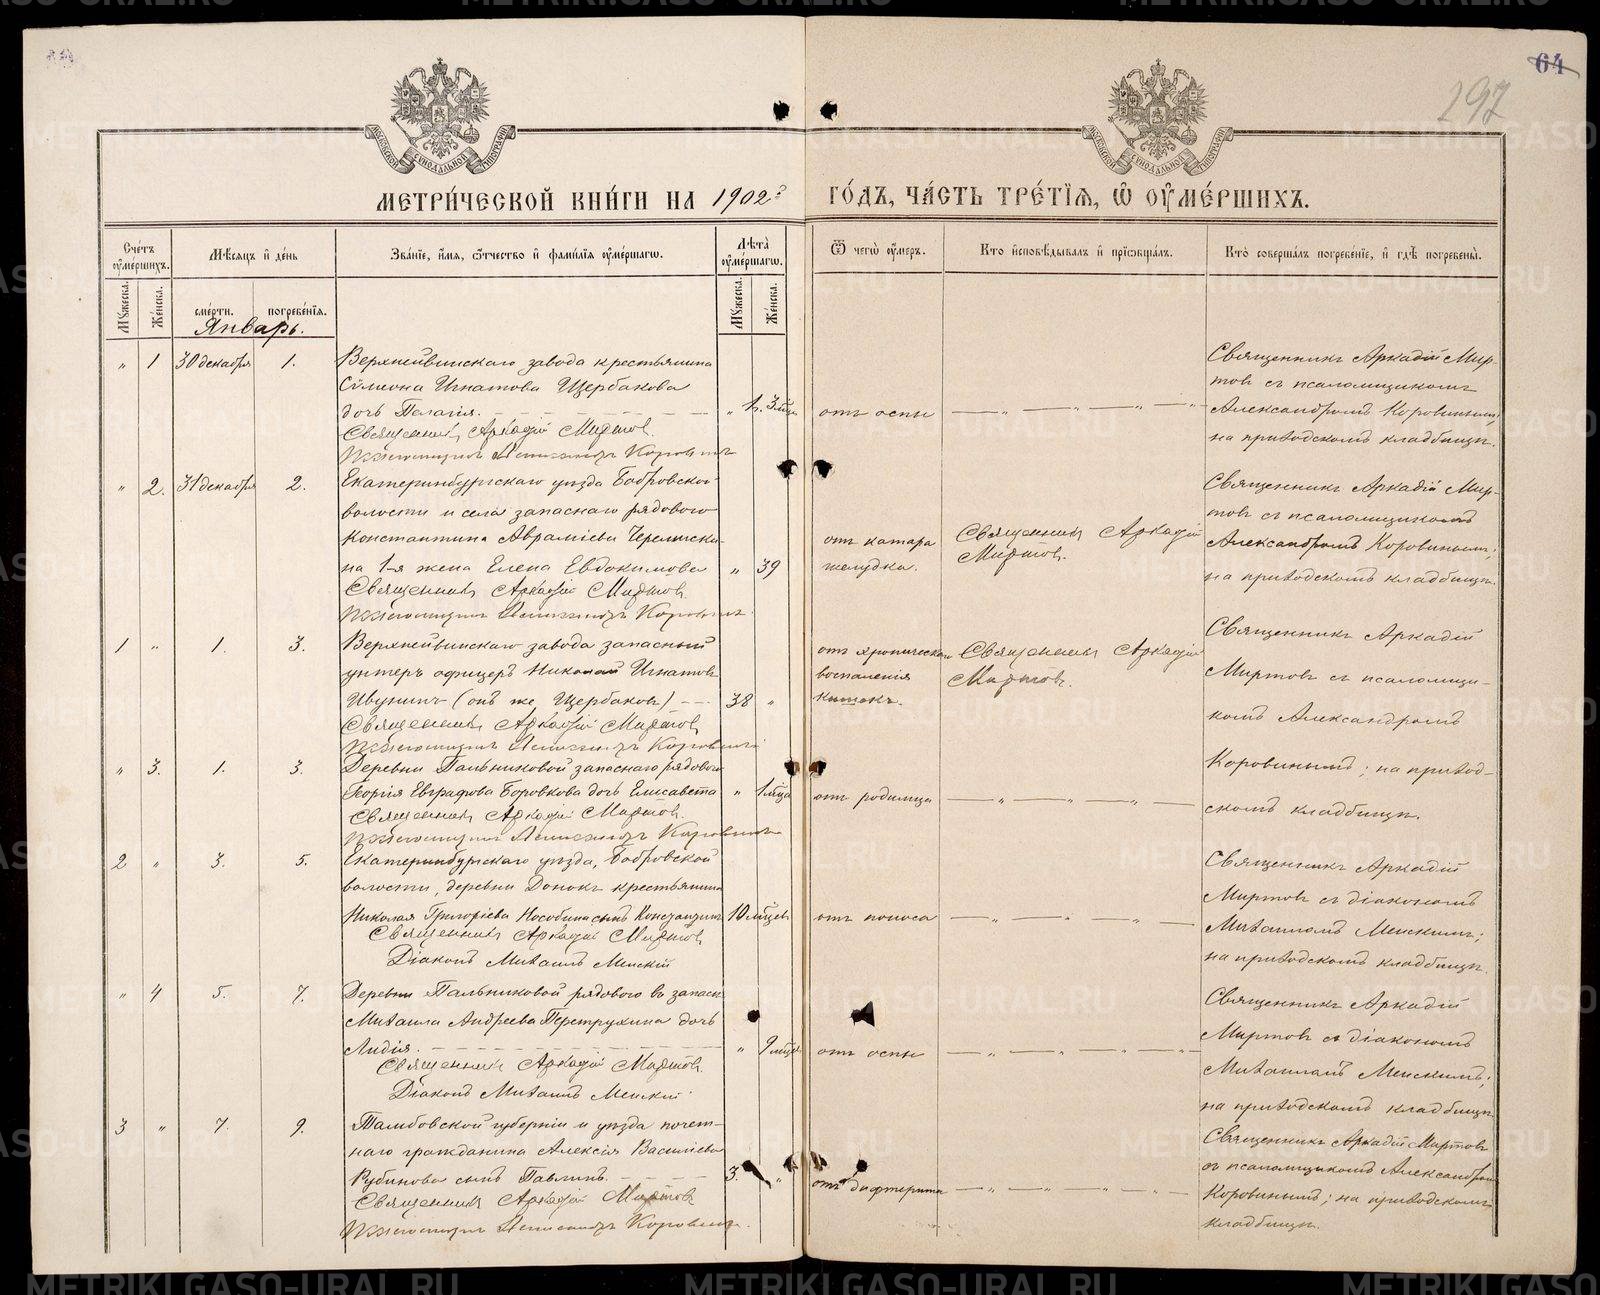 64
197
МОСКОВСКОЙ СѴНОДАЛЬНОЙ ТИПОГРАФІИ
МОСКОВСКОЙ СѴНОДАЛЬНОЙ ТИПОГРАФІИ
МЕТРИ́ЧЕСКОЙ КНИ́ГИ НА 1902 ГО́ДЪ, ЧА́СТЬ ТРЕ́ТІѦ, Ѿ ОУМЕ́РШИХЪ.
Счетъ оумершихъ.
Мѣсяцъ и день
Званіе, имя, отчество и фамилія оумершагѡ.
Лѣта оумершагѡ.
Ѿ чегѡ оумеръ.
Кто исповѣдывалъ и пріобщалъ.
Кто совершалъ погребеніе, и гдѣ погребены.
Мужеска. Женска.
смерти. погребенія.
Мужеска. Женска.
Январь.
" 1 30 декабря 1.
Верхнейвинскаго завода крестьянина
Сѵмеона Игнатова Щербакова
дочь Пелагія. " 1 г. 3 мца
Священникъ Аркадій Миртов.
Псаломщикъ Александръ Коровинъ
отъ оспы
Священникъ Аркадій Мир-
товъ съ псаломщикомъ
Александромъ Коровинымъ;
на приходскомъ кладбищѣ.
" 2. 31 декабря 2.
Екатеринбургскаго уѣзда Бобровской
волости и села запаснаго рядового
Константина Авраміева
на 1-я жена Елена Евдокимова " 39
Священникъ Аркадій Миртов.
Псаломщикъ Александръ Коровинъ
отъ катара
желудка.
Священникъ Аркадій
Миртов.
Священникъ Аркадій Мир-
товъ съ псаломщикомъ
Александромъ Коровинымъ;
на приходскомъ кладбищѣ.
1 " 1. 3.
Верхнейвинскаго завода запасный
унтеръ офицеръ Николай Игнатовъ
Ивунинъ (онъ же Щербаковъ) 38 "
Священникъ Аркадій Миртов
Псаломщикъ Александръ Коровинъ
отъ хроническаго
воспаленія
кишекъ.
Священникъ Аркадій
Миртов.
Священникъ Аркадій
Миртовъ съ псаломщи-
комъ Александромъ
Коровинымъ; на приход-
скомъ кладбищѣ.
" 3. 1. 3.
Деревни Пальниковой запаснаго рядового
Георгія Евграфова Боровкова дочь Елисавета " 1 мца
Священникъ Аркадій Миртов.
Псаломщикъ Александръ Коровинъ
отъ родимца
2 " 3. 5.
Екатеринбургскаго уѣзда, Бобровской
волости, деревни крестьянина
Николая Григоріева сынъ Константинъ 10 мцев
Священникъ Аркадій Миртов
Діаконъ Михаилъ Менскій
отъ поноса
Священникъ Аркадій
Миртовъ съ діакономъ
Михаиломъ Менскимъ;
на приходскомъ кладбищѣ.
" 4 5. 7.
Деревни Пальниковой рядового въ запасѣ
Михаила Андреева Перетрухина дочь
Лидія. " 9 мцев
Священникъ Аркадій Миртов.
Діаконъ Михаилъ Менскій
отъ оспы
Священникъ Аркадій
Миртовъ съ діакономъ
Михаиломъ Менскимъ;
на приходскомъ кладбищѣ.
3 " 7. 9.
Тамбовской губерніи и уѣзда почет-
наго гражданина Алексія Василіева
Рубинова сынъ Павлинъ. 3. "
Священникъ Аркадій Миртов
Псаломщикъ Александръ Коровинъ.
отъ дифтерита
Священникъ Аркадій Миртовъ
съ псаломщикомъ Александромъ
Коровинымъ; на приходскомъ
кладбищѣ.
METRIKI.GASO-URAL.RU